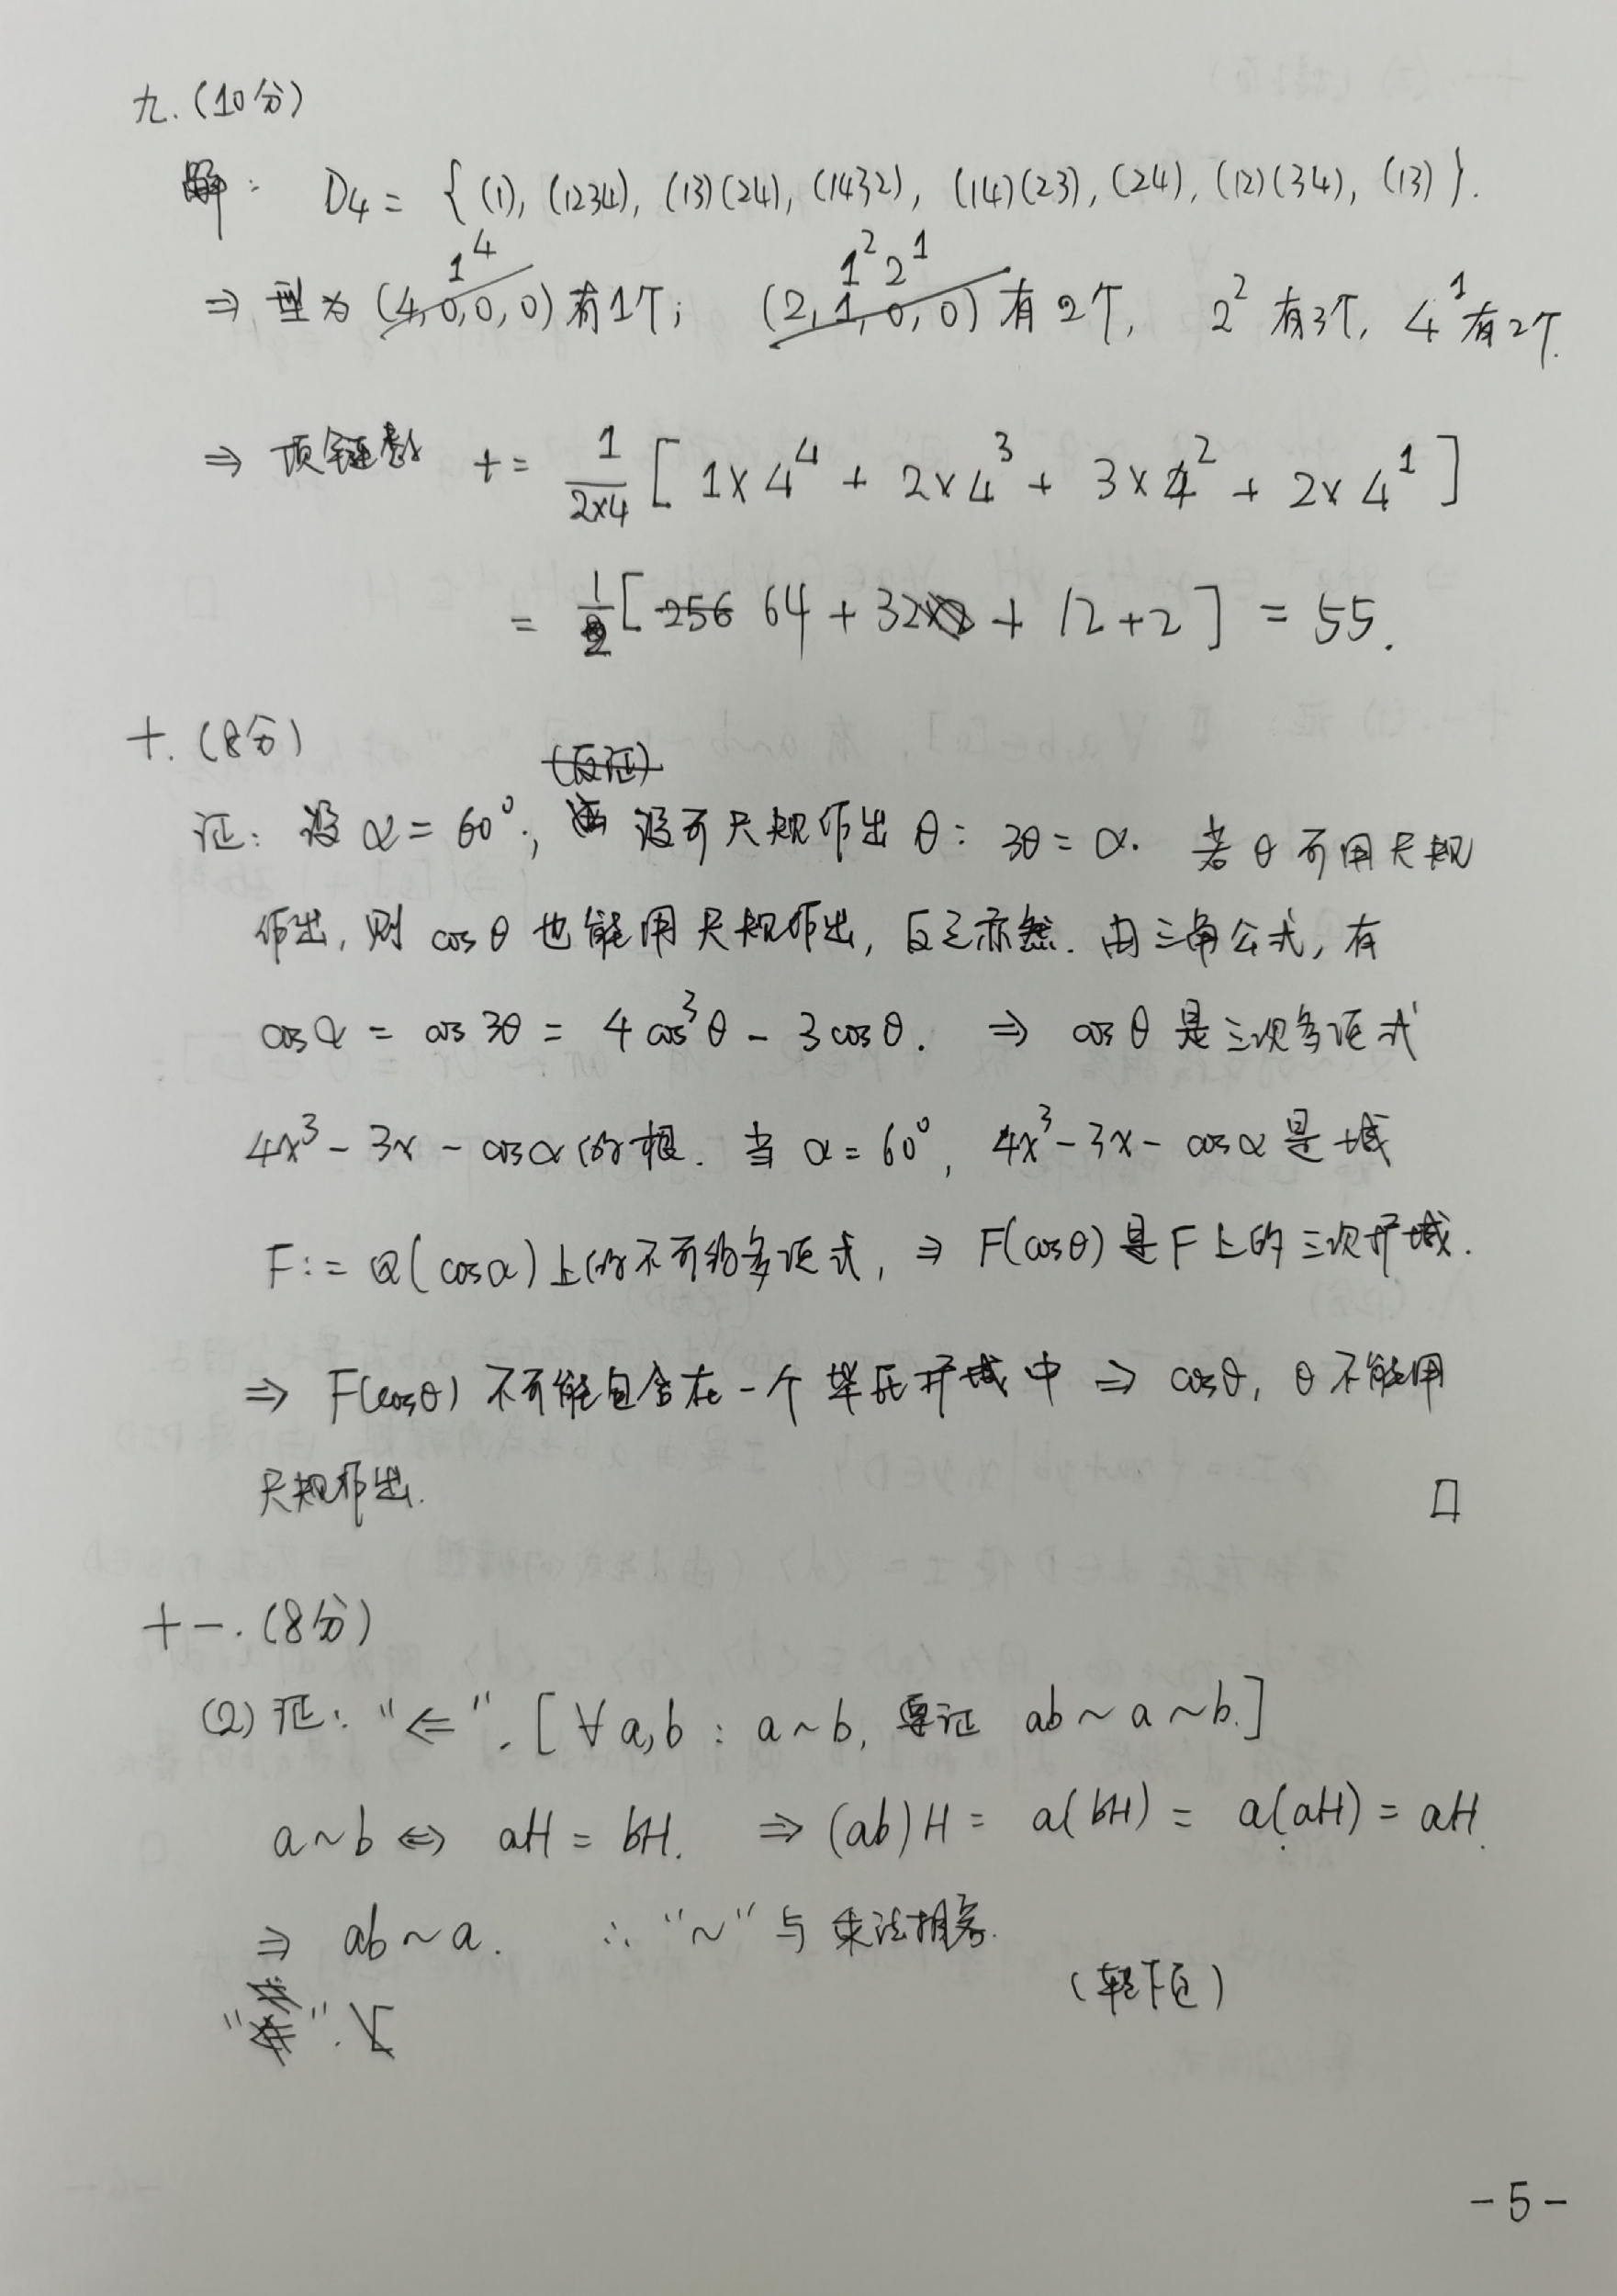 九.(10分)
解: D₄ = { (1), (1234), (13)(24), (1432), (14)(23), (24), (12)(34), (13) }.
⇒ 型为 1⁴ 有1个; 1²2¹ 有2个, 2² 有3个, 4¹ 有2个.
⇒ 项链数 t = 1/(2×4) [ 1×4⁴ + 2×4³ + 3×4² + 2×4¹ ]
= 1/2 [ 64 + 32 + 12 + 2 ] = 55.
十.(8分)
证: 设 α = 60°, 设可尺规作出 θ: 3θ = α. 若 θ 可用尺规
作出, 则 cosθ 也能用尺规作出, 反之亦然. 由三角公式, 有
cosα = cos3θ = 4cos³θ - 3cosθ. ⇒ cosθ 是三次多项式
4x³ - 3x - cosα 的根. 当 α = 60°, 4x³ - 3x - cosα 是域
F := Q(cosα) 上的不可约多项式, ⇒ F(cosθ) 是 F 上的三次扩域.
⇒ F(cosθ) 不可能包含在一个毕氏扩域中 ⇒ cosθ, θ 不能用
尺规作出. □
十一.(8分)
(2) 证: "⇐". [ ∀a,b : a~b, 要证 ab ~ a ~ b.]
a~b ⇔ aH = bH. ⇒ (ab)H = a(bH) = a(aH) = aH.
⇒ ab ~ a. ∴ "~" 与乘法相容.
(转下页)
-5-